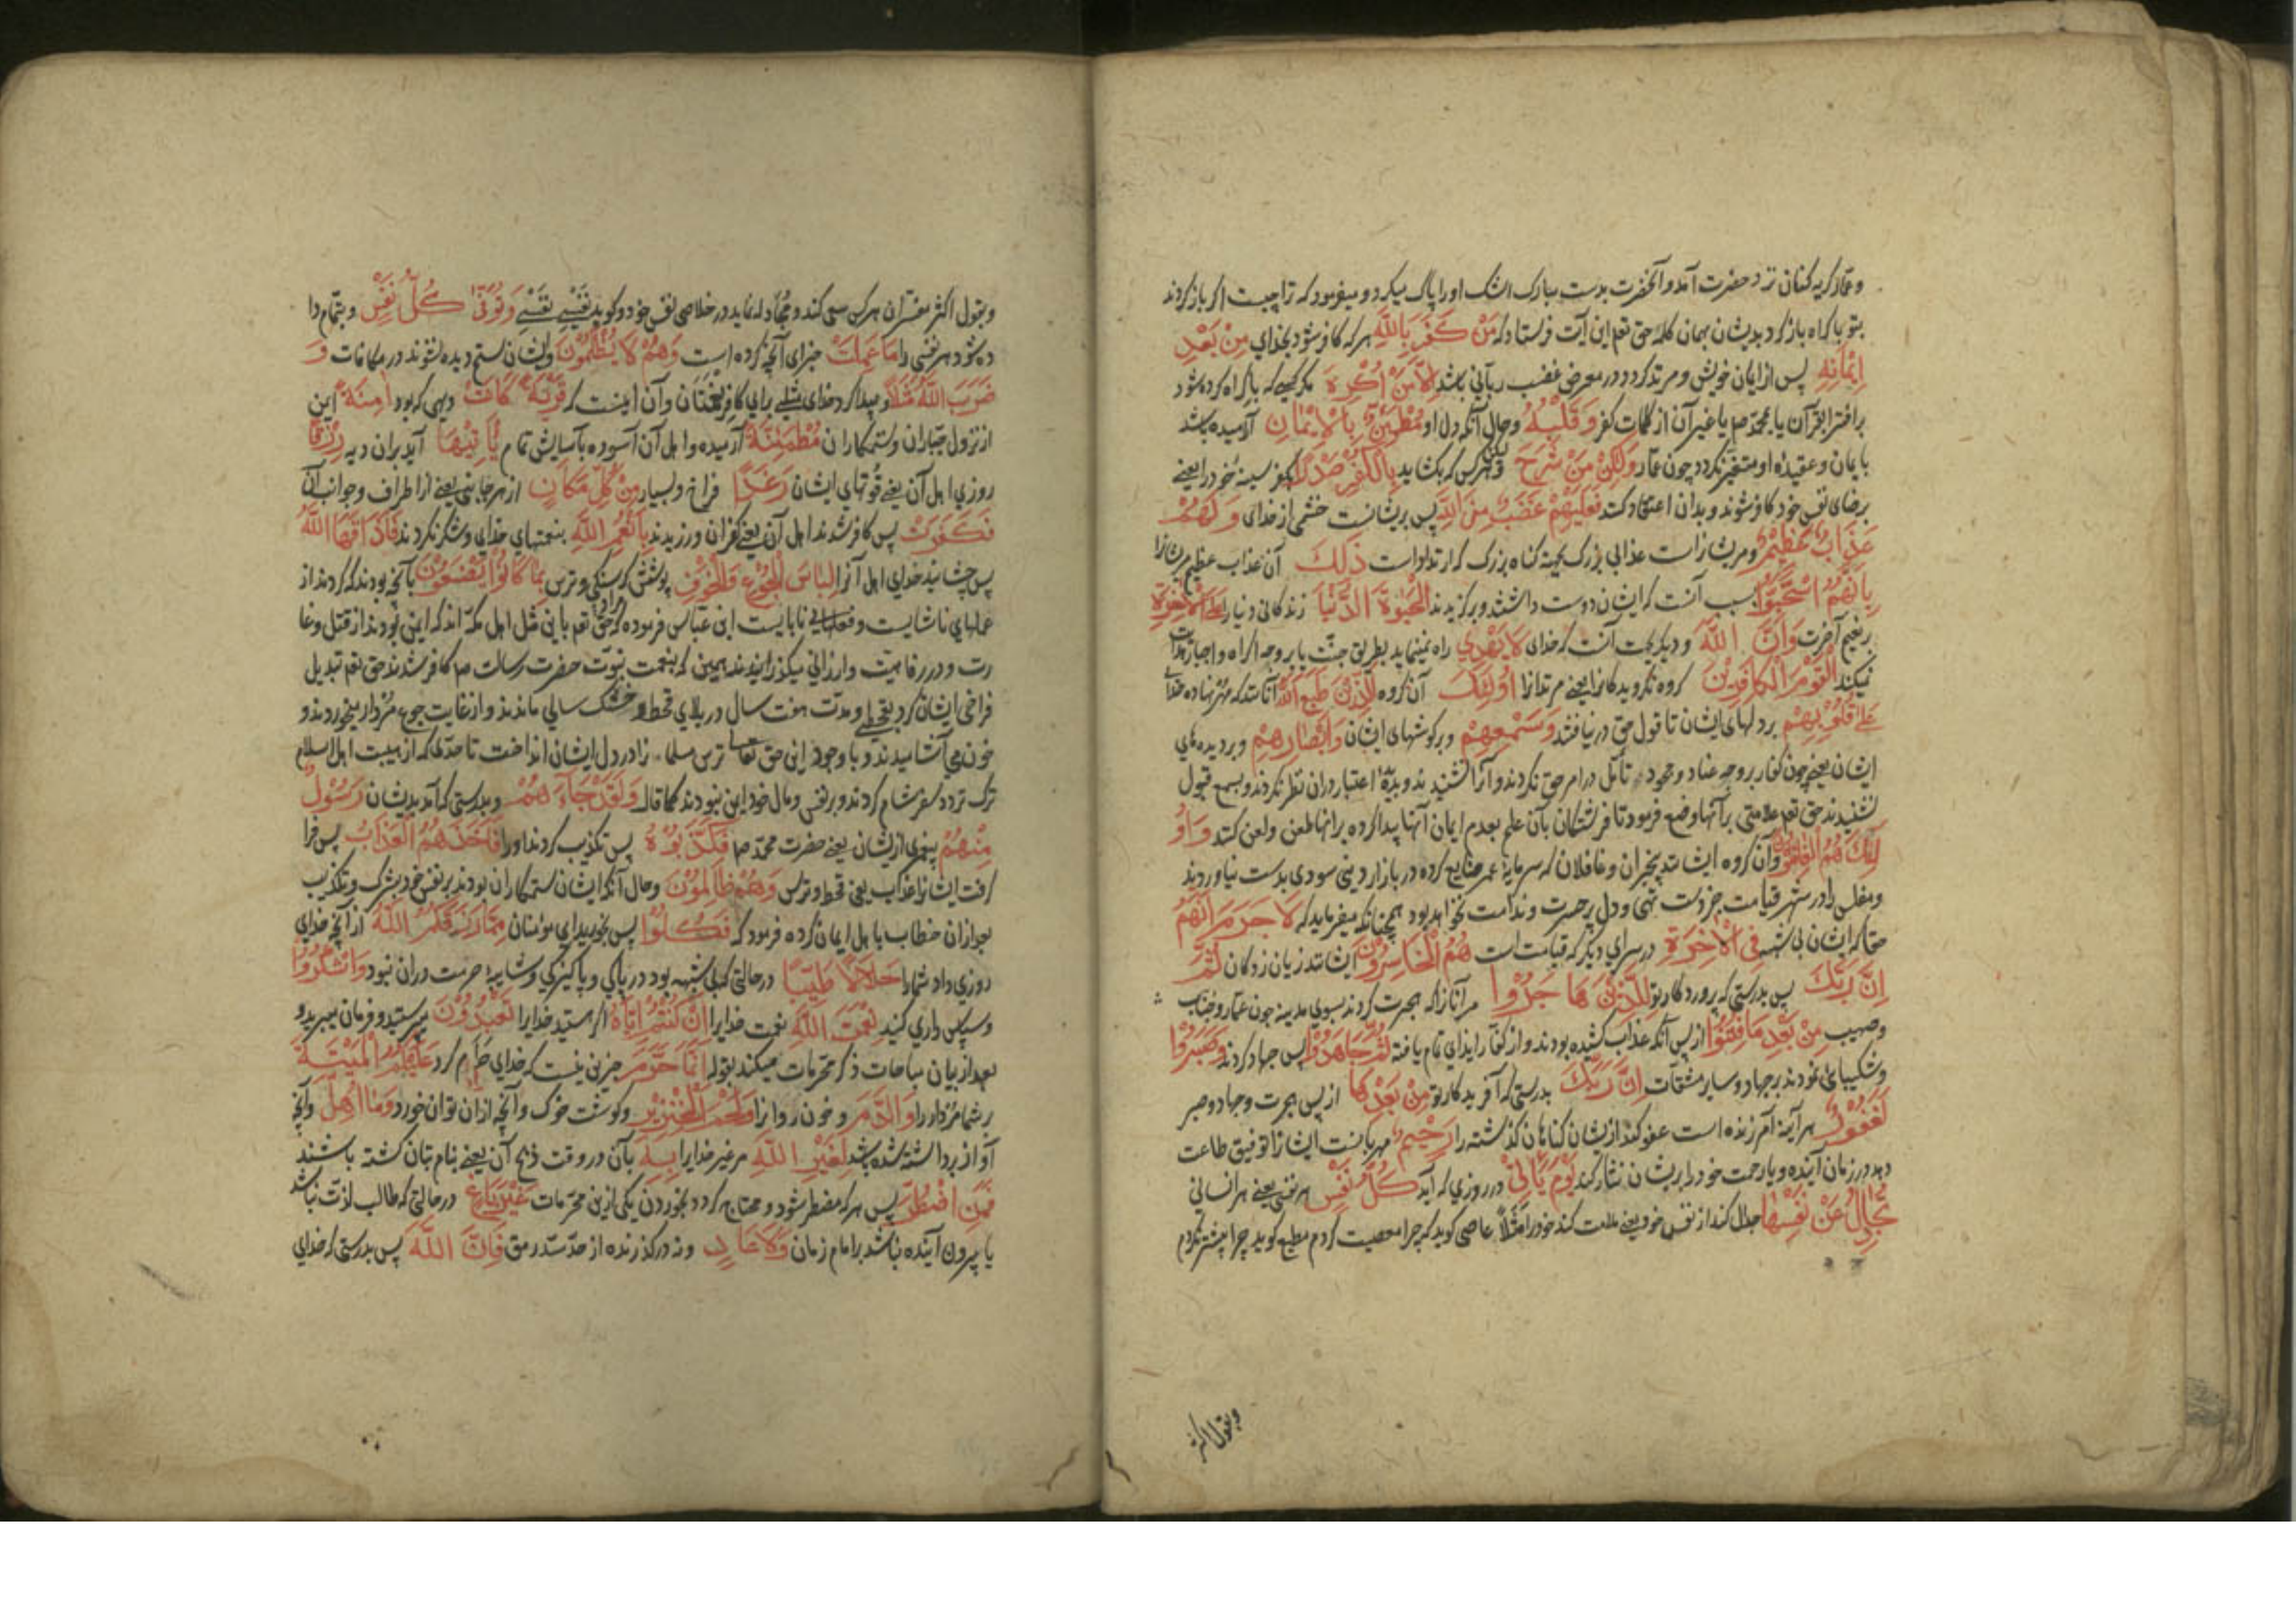 وعمار گریه کنان نزد حضرت آمد و آنحضرت بدست مبارک اشک او را پاک میکرد و میفرمود که ترا چیست اگر باز گردند
بتو با کراه باز گرد بدیشان بهمان کلمه حق تعم این آیت فرستاد که مَنْ كَفَرَ بِاللَّهِ هر که کافر شود بخدای مِنْ بَعْدِ
إِيْمَانِهِ پس از ایمان خویش و مرتد گردد در معرض غضب ربانی باشد إِلَّا مَنْ أُكْرِهَ مگر کسی که باکراه کرده شود
بر افترا بقرآن یا بمحمد صم یا غیر آن از کلمات کفر وَقَلْبُهُ وحال آنکه دل او مُطْمَئِنٌّ بِالْإِيْمَانِ آرامیده باشد
بایمان و عقیده او متغیر نگردد چون عمار وَلَكِنْ مَنْ شَرَحَ ولیکن هر کس که بکشاید بِالْكُفْرِ صَدْرًا بکفر سینه خود را یعنی
برضای نفس خود کافر شوند و بدان اعتقاد کند فَعَلَيْهِمْ غَضَبٌ مِنَ اللَّهِ پس بریشانست خشمی از خدای وَلَهُمْ
عَذَابٌ عَظِيْمٌ و مریشانراست عذابی بزرگ بجهة گناه بزرگ که ارتداداست ذَلِكَ آن عذاب عظیم مریشانرا
بِأَنَّهُمُ اسْتَحَبُّوا بسبب آنست که ایشان دوست داشتند و برگزیدند الْحَيٰوةَ الدُّنْيَا زندگانی دنیا را عَلَى الْآخِرَةِ
بر نعیم آخرت وَأَنَّ اللَّهَ و دیگر بجهت آنست که خدای لَا يَهْدِي راه نمینماید بطریق جنت یا بر وجه اکراه و اجبار هدایت
نمیکند الْقَوْمَ الْكَافِرِيْنَ گروه نگرویدگانرا یعنی مرتدانرا أُولٰئِكَ آن گروه الَّذِيْنَ طَبَعَ اللَّهُ آنانند که مهر نهاده خدای
عَلَى قُلُوْبِهِمْ بر دلهای ایشان تا قول حق در نیافتند وَسَمْعِهِمْ و بر گوشهای ایشان وَأَبْصَارِهِمْ و بر دیده های
ایشان یعنی چون کفار بر وجه عناد و جحود تأمل در امر حق نکردند و آنرا نشنیدند و بدیدهٔ اعتبار دران نظر نکردند و بسمع قبول
نشنیدند حق تعم علامتی بر آنها وضع فرمود تا فرشتگان بآن علم بعدم ایمان آنها پیدا کرده بر انها طعن و لعن کنند وَأُو
لٰئِكَ هُمُ الْغَافِلُوْنَ و آن گروه ایشانند بیخبران و غافلان که سرمایهٔ عمر ضایع کرده در بازار دین سودی بدست نیاوردند
و مفلس را در شهر قیامت جز دست تهی و دل پر حسرت و ندامت نخواهد بود همچنانکه میفرماید که لَا جَرَمَ أَنَّهُمْ
حقا که ایشان بی شبه فِي الْآخِرَةِ در سرای دیگر که قیامت است هُمُ الْخَاسِرُوْنَ ایشانند زیان زدگان ثُمَّ
إِنَّ رَبَّكَ پس بدرستی که پروردگار تو لِلَّذِيْنَ هَاجَرُوْا مر آنانرا که هجرت کردند بسوی مدینه چون عمار و خباب
و صهیب مِنْ بَعْدِ مَا فُتِنُوْا از پس آنکه عذاب کشیده بودند و از کفار ایذای تمام یافته ثُمَّ جَاهَدُوْا پس جهاد کردند وَصَبَرُوْا
و شکیبائی نمودند بر جهاد و سایر مشقات إِنَّ رَبَّكَ بدرستی که آفریدگار تو مِنْ بَعْدِهَا از پس هجرت و جهاد و صبر
لَغَفُوْرٌ هر آینه آمرزنده است عفو کند ازیشان گناهان گذشته را رَحِيْمٌ مهربانست ایشانرا توفیق طاعت
دهد در زمان آینده و یا رحمت خود را بریشان نثار کند يَوْمَ تَأْتِيْ در روزی که آید كُلُّ نَفْسٍ هر نفسی یعنی هر انسانی
تُجَادِلُ عَنْ نَفْسِهَا جدال کند از نفس خود یعنی ملامت کند خود را مَثَلًا عاصی گوید که چرا معصیت کردم مطیع گوید چرا بیشتر نکردم
وبقول اکثر
وبقول اکثر مفسران هر کس سعی کند و مجادله نماید در خلاصی نفس خود و گوید نَفْسِيْ نَفْسِيْ وَتُوَفّٰى كُلُّ نَفْسٍ و بتمام دا
ده شود هر نفسی را مَا عَمِلَتْ جزای آنچه کرده است وَهُمْ لَا يُظْلَمُوْنَ و ایشان ستم دیده نشوند در مکافات وَ
ضَرَبَ اللَّهُ مَثَلًا و پیدا کرد خدای مثلی برای کافر نعمتان و آن اینست که قَرْيَةً كَانَتْ دیهی که بود اٰمِنَةً ایمن
از نزول جباران و ستمکاران مُطْمَئِنَّةً آرمیده و اهل آن آسوده بآسایش تمام يَأْتِيْهَا آید بران دیه رِزْقُهَا
روزی اهل آن یعنی قوتهای ایشان رَغَدًا فراخ و بسیار مِنْ كُلِّ مَكَانٍ از هر جانبی یعنی از اطراف و جوانب آن
فَكَفَرَتْ پس کافر شدند اهل آن یعنی کفران ورزیدند بِأَنْعُمِ اللَّهِ بنعمتهای خدای و شکر نکردند فَأَذَاقَهَا اللَّهُ
پس چشانید خدای اهل آنرا لِبَاسَ الْجُوْعِ وَالْخَوْفِ پوشش گرسنگی و ترس بِمَا كَانُوْا يَصْنَعُوْنَ بآنچه بودند که کردند از
عملهای ناشایست و فعلهای نابایست ابن عباس فرموده که مراد حق تعم باین مثل اهل مکه اند که ایمن بودند از قتل و غا
رت و در رفاهیت و ارزانی میگذرانیدند همین که بنعمت نبوت حضرت رسالت صم کافر شدند حق تعم تبدیل
فراخی ایشان کرد بقحطی و مدت هفت سال در بلای قحط و خشک سالی ماندند و از غایت جوع مردار میخوردند و
خون می آشامیدند و با وجود این حق تعالی ترس مسلمانان را در دل ایشان انداخت تا حدی که از هیبت اهل اسلام
ترک تردد سفر شام کردند و بر نفس و مال خود ایمن نبودند کما قال وَلَقَدْ جَاءَهُمْ و بدرستی که آمد بدیشان رَسُوْلٌ
مِنْهُمْ پیغمبری ازیشان یعنی حضرت محمد صم فَكَذَّبُوْهُ پس تکذیب کردند او را فَأَخَذَهُمُ الْعَذَابُ پس فرا
گرفت ایشانرا عذاب یعنی قحط و ترس وَهُمْ ظَالِمُوْنَ و حال آنکه ایشان ستمکاران بودند بر نفس خود بشرک و تکذیب
بعد ازان خطاب باهل ایمان کرده فرمود که فَكُلُوْا پس بخورید ای مؤمنان مِمَّا رَزَقَكُمُ اللَّهُ از آنچه خدای
روزی داد شما را حَلَالًا طَيِّبًا در حالتی که بی شبهه بود در پاکی و پاکیزگی و شایبهٔ حرمت دران نبود وَاشْكُرُوْا
و سپاس داری کنید نِعْمَتَ اللَّهِ نعمت خدایرا إِنْ كُنْتُمْ إِيَّاهُ اگر هستید خدایرا تَعْبُدُوْنَ میپرستید و فرمان میبرید و
بعد از بیان مباحات ذکر محرمات میکند بقوله إِنَّمَا حَرَّمَ جزین نیست که خدای حرام کرد عَلَيْكُمُ الْمَيْتَةَ
بر شما مردار را وَالدَّمَ و خون روانرا وَلَحْمَ الْخِنْزِيْرِ و گوشت خوک و آنچه ازان توان خورد وَمَا أُهِلَّ و آنچه
آواز برداشته شده باشد لِغَيْرِ اللَّهِ مر غیر خدایرا بِهِ بآن در وقت ذبح آن یعنی بنام بتان کشته باشند
فَمَنِ اضْطُرَّ پس هر که مضطر شود و محتاج گردد بخوردن یکی ازین محرمات غَيْرَ بَاغٍ در حالتی که طالب لذت نباشد
یا بیرون آینده نباشد بر امام زمان وَلَا عَادٍ و نه درگذرنده از حد سد رمق فَإِنَّ اللَّهَ پس بدرستی که خدای